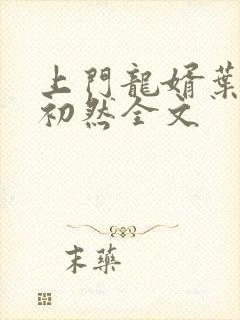 上門龍婿葉
初然全文
末藥